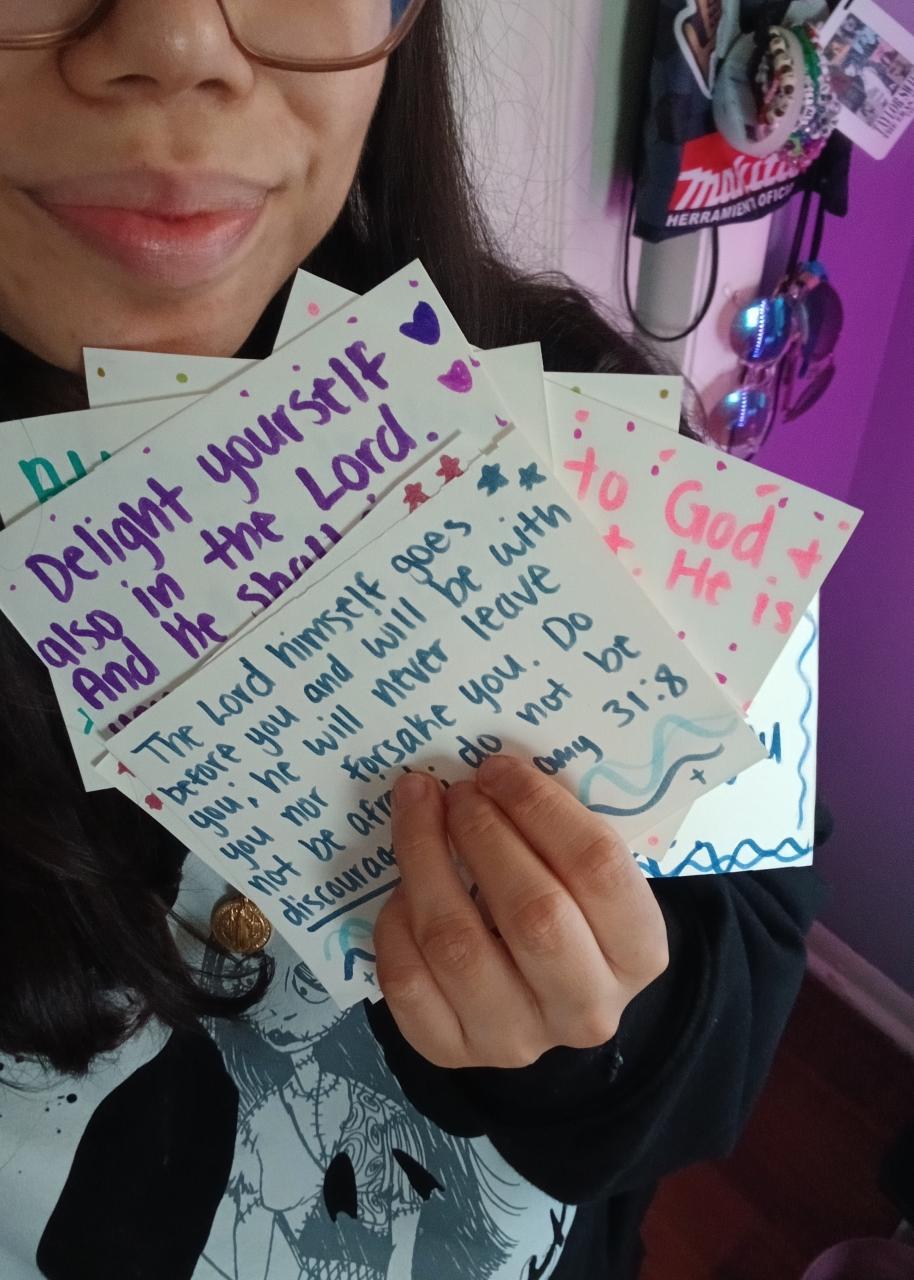 Delight yourself
also in the Lord.
And He shall
The Lord himself goes
before you and will be with
you; he will never leave
you nor forsake you. Do
not be afra ; do not be
discourag
omy 31:8
to God
He is
makita
HERRAMIENT OFIC